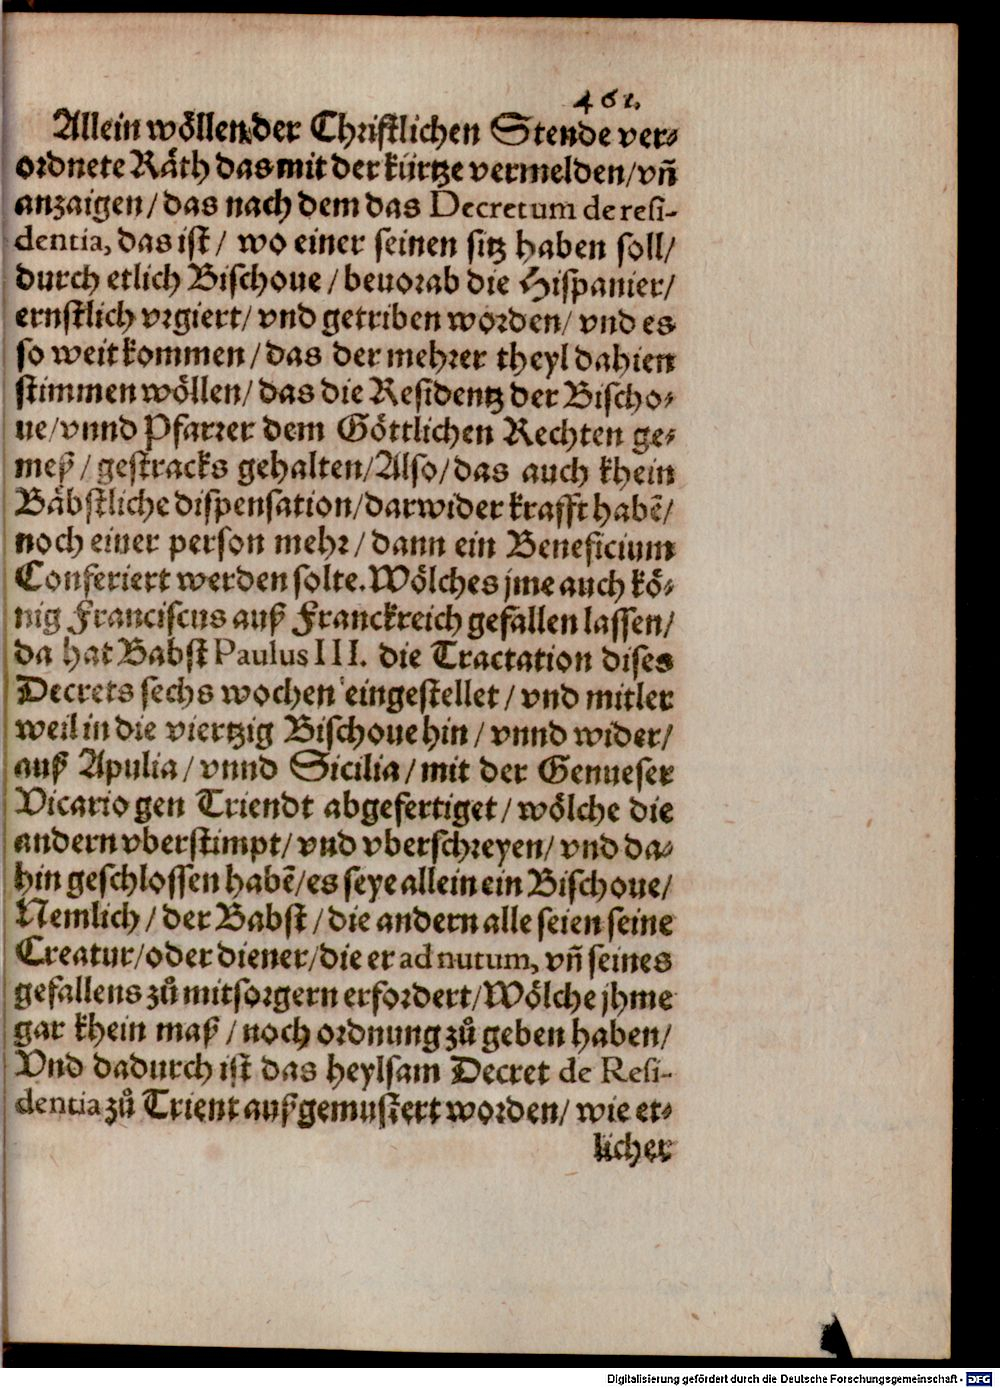 461.
Allein wöllen der Christlichen Stende ver⸗
ordnete Räth das mit der kürtze vermelden/ vñ
anzaigen/ das nach dem das Decretum de resi-
dentia, das ist/ wo einer seinen sitz haben soll/
durch etlich Bischoue/ beuorab die Hispanier/
ernstlich vrgiert/ vnd getriben worden/ vnd es
so weit kommen/ das der mehrer theyl dahien
stimmen wöllen/ das die Residentz der Bischo⸗
ue/ vnnd Pfarrer dem Göttlichen Rechten ge⸗
meß/ gestracks gehalten/ Also/ das auch khein
Bäbstliche dispensation/ darwider krafft habẽ/
noch einer person mehr/ dann ein Beneficium
Conferiert werden solte. Wölches jme auch kö⸗
nig Franciscus auß Franckreich gefallen lassen/
da hat Babst Paulus III. die Tractation dises
Decrets sechs wochen eingestellet/ vnd mitler
weil in die viertzig Bischoue hin/ vnnd wider/
auß Apulia/ vnnd Sicilia/ mit der Genueser
Vicario gen Triendt abgefertiget/ wölche die
andern vberstimpt/ vnd vberschreyen/ vnd da⸗
hin geschlossen habẽ/ es seye allein ein Bischoue/
Nemlich/ der Babst/ die andern alle seien seine
Creatur/ oder diener/ die er ad nutum, vñ seines
gefallens zů mitsorgern erfordert/ Wölche jhme
gar khein maß/ noch ordnung zů geben haben/
Vnd dadurch ist das heylsam Decret de Resi-
dentia zů Trient außgemustert worden/ wie et⸗
licher
Digitalisierung gefördert durch die Deutsche Forschungsgemeinschaft - DFG